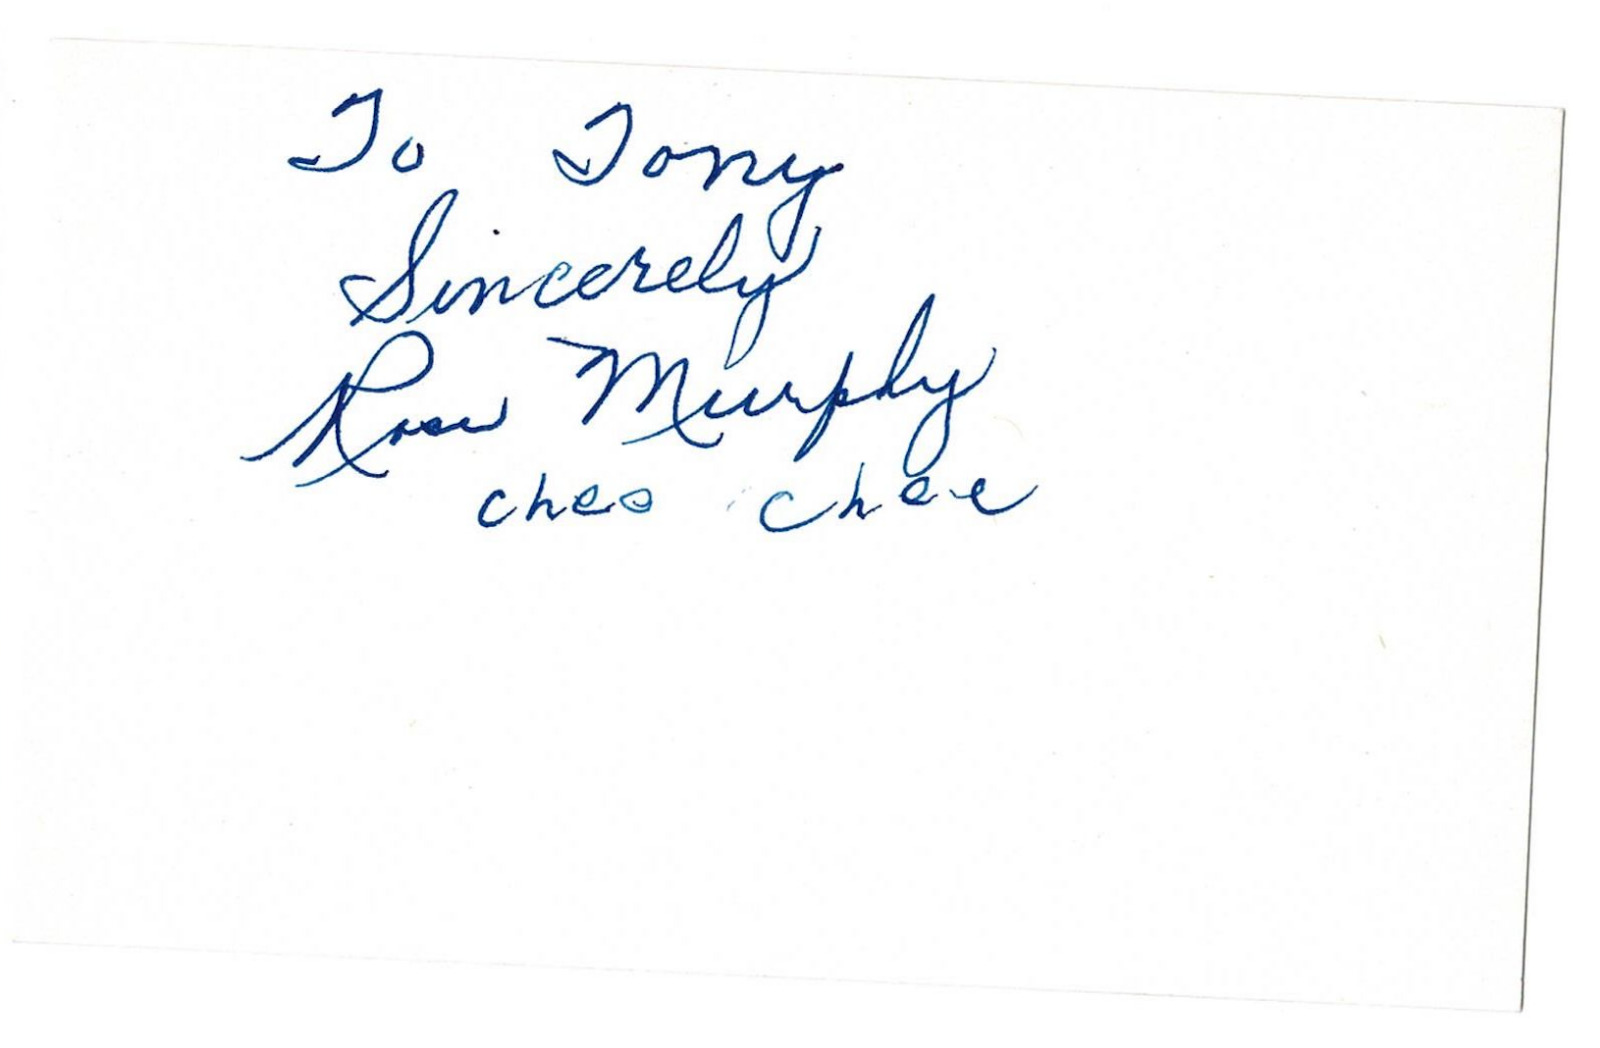 To Tony
Sincerely
Rose Murphy
chee chee